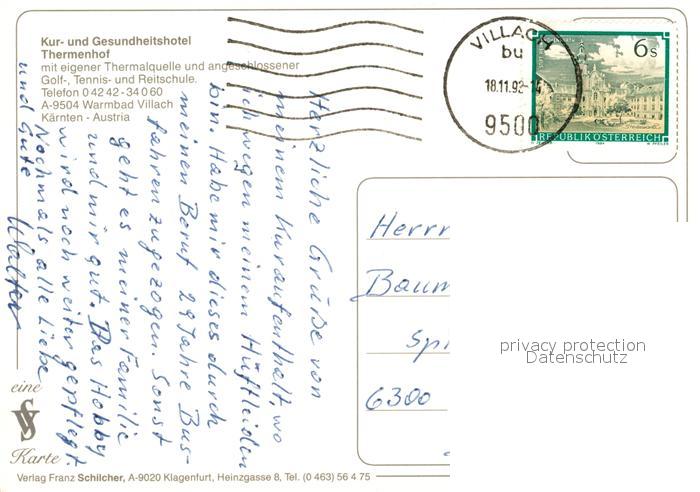 Kur- und Gesundheitshotel
Thermenhof
mit eigener Thermalquelle und angeschlossener
Golf-, Tennis- und Reitschule.
Telefon 0 42 42 - 34 0 60
A-9504 Warmbad Villach
Kärnten - Austria
VILLACH
bu
18.11.92-14
9500
6 S
REPUBLIK ÖSTERREICH
Herzliche Grüße von
meinem Kuraufenthalt wo
ich wegen meinem Hüftleiden
bin. Habe mir dieses durch
meinen Beruf 29 Jahre Bus-
fahren zugezogen. Sonst
geht es meiner Familie
und mir gut. Das Hobby
wird noch weiter gepflegt.
Nochmals alle Liebe
und Gute
Walter
Herrn
Baum
Spi
6300
privacy protection
Datenschutz
eine
VS
Karte
Verlag Franz Schilcher, A-9020 Klagenfurt, Heinzgasse 8, Tel. (0 463) 56 4 75